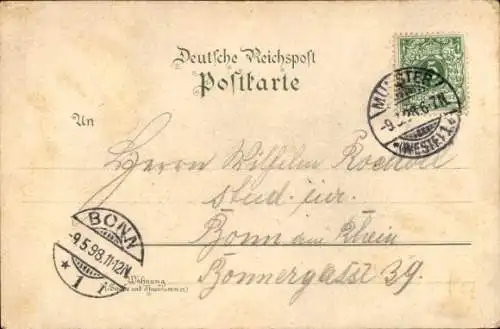 Deutsche Reichspost
Postkarte
An
MÜNSTER
-9.5.98.6-7.N.
*(WESTF.)1.e
Herrn Wilhelm
stud. jur.
Bonn am Rhein
Bonnergasse 39.
BONN
-9.5.98.11-12N.
* 1 f
Wohnung
(Straße und Hausnummer)